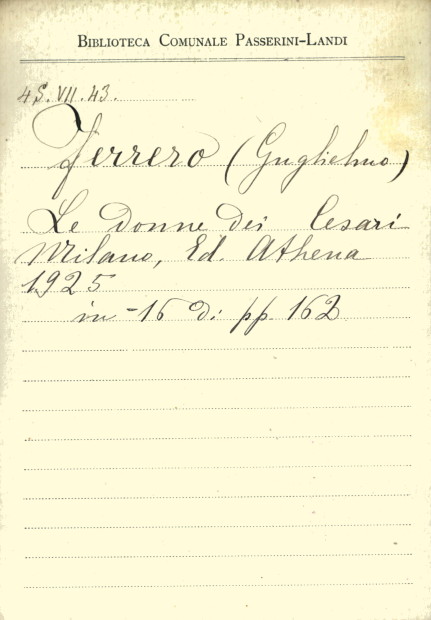 BIBLIOTECA COMUNALE PASSERINI-LANDI
4S.VII.43.
Ferrero (Guglielmo)
Le donne dei Cesari
Milano, Ed. Athena
1925
in-16 di pp. 162